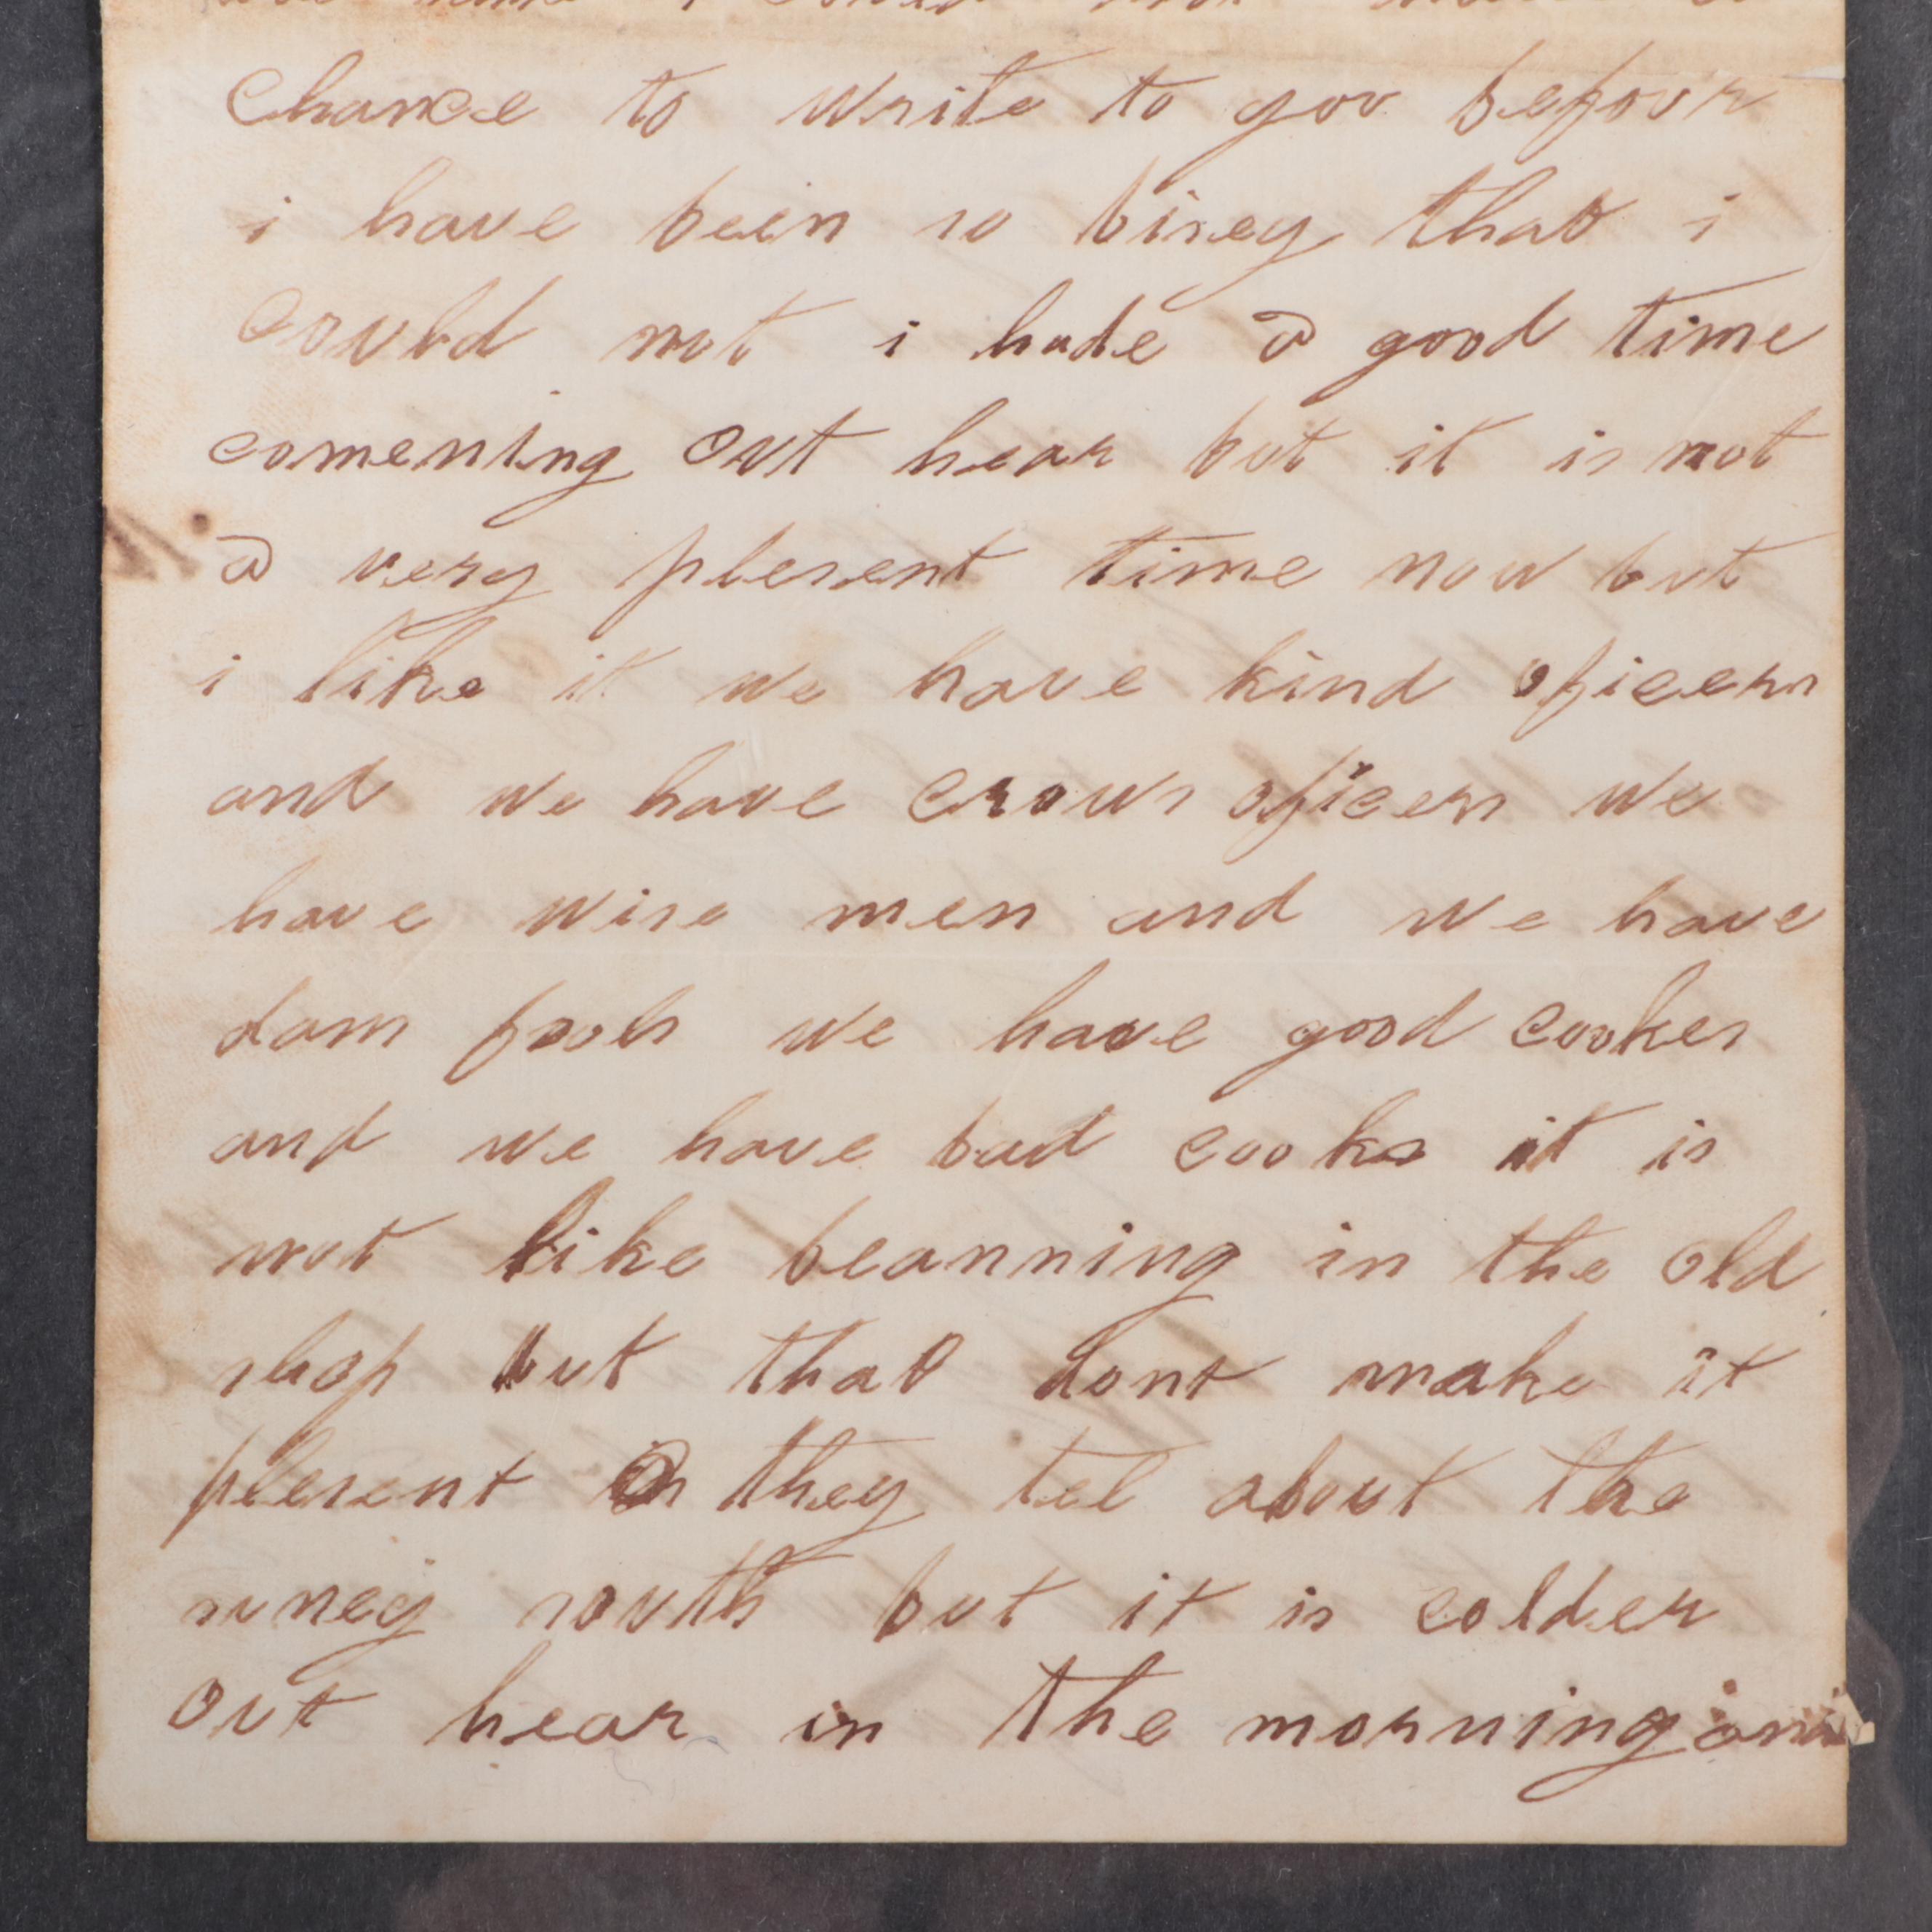 Chance to write to you befour
i have bein so bisey that i
Could not i hade a good time
comening out hear but it is not
a very plesent time now but
i like it we have kind oficers
and we have crows oficers we
have wise men and we have
dam fools we have good cookes
and we have bad cooks it is
not like beanning in the old
shop but that dont make it
plesent they tel about the
suney south but it is colder
out hear in the morning